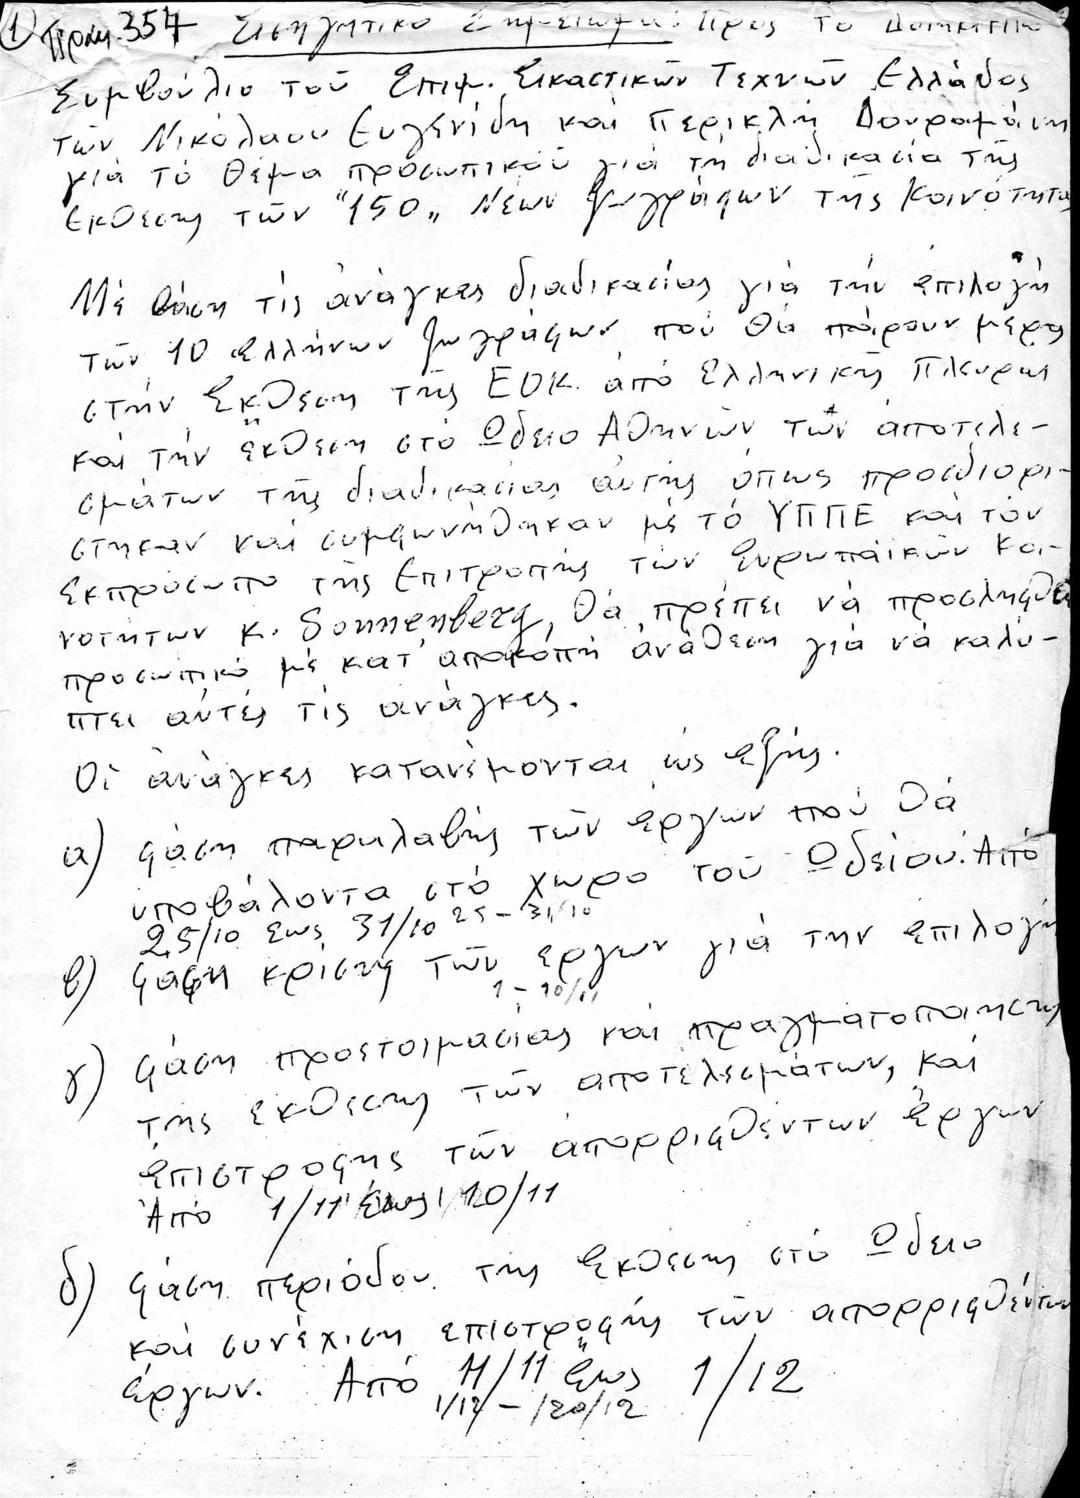 ① Πρακ. 354 Εισηγητικό Σημείωμα: Πρός το Διοικητικό
Συμβούλιο τοῦ Επιμ. Εικαστικῶν Τεχνῶν Ελλάδος
τῶν Νικόλαου Ευγενίδη καί Περικλή Δουραμάνη
γιά τό θέμα προσωπικοῦ γιά τή διαδικασία τῆς
εκθεσης τῶν "150„ Νέων ζωγράφων τῆς Κοινότητας
Μέ βάση τίς ἀνάγκες διαδικασίας γιά τήν ἐπιλογή
τῶν 10 ελλήνων ζωγράφων πού θά πάρουν μέρος
στήν Εκθεση τῆς ΕΟΚ από Ελληνικῆς Πλευρας
καί τήν ἔκθεση στό Ωδειο Αθηνῶν τῶν ἀποτελε-
σμάτων τῆς διαδικασίας αὐτής ὅπως προσδιορι-
στηκαν καί συμφωνήθηκαν μέ τό ΥΠΠΕ καί τόν
Εκπρόσωπο τῆς Επιτροπής τῶν Ευρωπαϊκῶν Κοι-
νοτήτων κ. Sonnenberg, θά πρέπει νά προσληφθεί
προσωπικό μέ κατ' αποκοπή ἀνάθεση γιά νά καλύ-
πτει αὐτές τίς ανάγκες.
Οἱ ἀνάγκες κατανέμονται ὡς εξής.
α) φάση παραλαβής τῶν ἔργων πού θά
υποβάλονται στό χωρο τοῦ Ωδείου. Ἀπό
25/10 εως 31/10 25 - 31/10
β) φάση κρίσης τῶν εργων γιά την ἐπιλογή
1 - 10/11
γ) φάση προετοιμασίας καί πραγματοποιησης
της εκθεσης τῶν αποτελεσμάτων, καί
ἐπιστροφης τῶν ἀπορριφθέντων ἔργων
Ἀπό 1/11 ἕως 10/11
δ) φάση περιόδου της Εκθεσης στό Ωδειο
καί συνέχιση επιστροφής τῶν απορριφθέντων
έργων. Ἀπό 11/11 ἕως 1/12
1/12 - 20/12